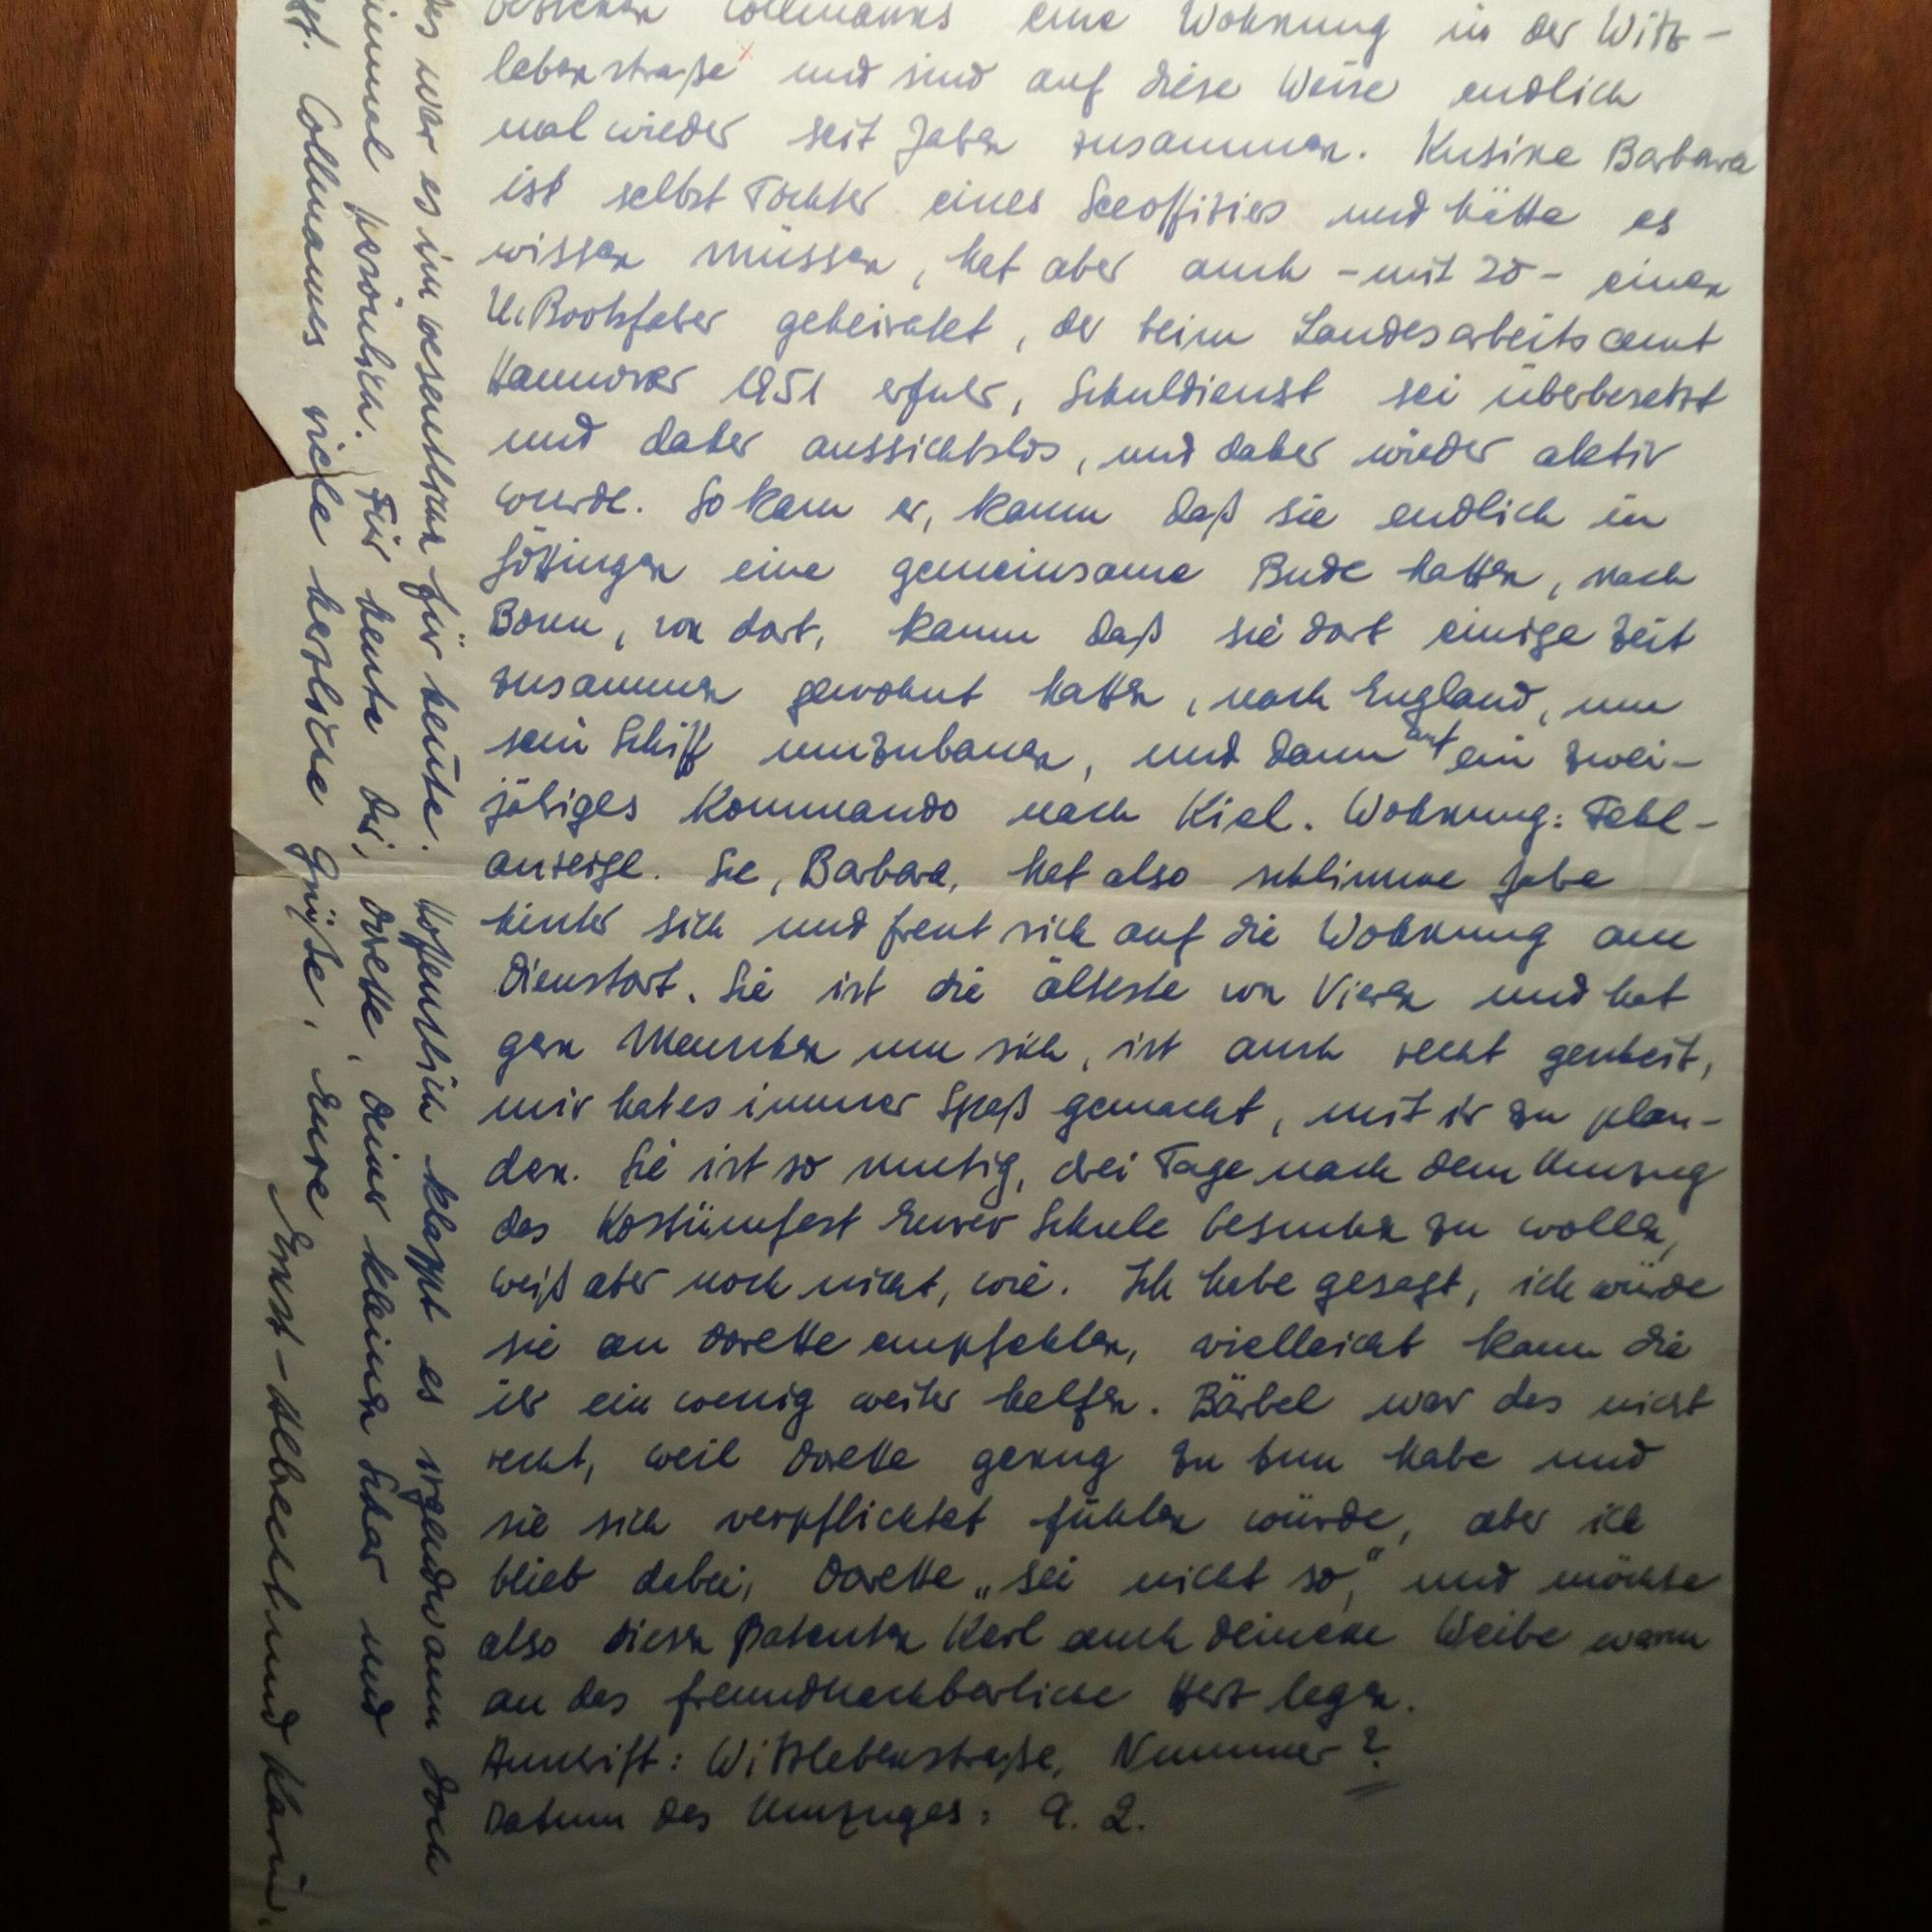 Collmanns eine Wohnung in der Witz-
lebenstraße und sind auf diese Weise endlich
mal wieder seit Jahren zusammen. Kusine Barbara
ist selbst Tochter eines Seeoffiziers und hätte es
wissen müssen, hat aber auch - mit 20 - einen
U.Bootsfahrer geheiratet, der beim Landesarbeitsamt
Hannover 1951 erfuhr, Schuldienst sei überbesetzt
und daher aussichtslos, und daher wieder aktiv
wurde. So kam er, kaum daß sie endlich in
Göttingen eine gemeinsame Bude hatten, nach
Bonn, von dort, kaum daß sie dort einige Zeit
zusammen gewohnt hatten, nach England, um
sein Schiff umzubauen, und dann auf ein zwei-
jähriges Kommando nach Kiel. Wohnung: Fehl-
anzeige. Sie, Barbara, hat also schlimme Jahre
hinter sich und freut sich auf die Wohnung am
Dienstort. Sie ist die älteste von Vieren und hat
gern Menschen um sich, ist auch recht gescheit,
mir hat es immer Spaß gemacht, mit ihr zu plau-
dern. Sie ist so mutig, drei Tage nach dem Umzug
das Kostümfest Eurer Schule besuchen zu wollen,
weiß aber noch nicht, wie. Ich habe gesagt, ich würde
sie an Dorette empfehlen, vielleicht kann die
ihr ein wenig weiter helfen. Bärbel war das nicht
recht, weil Dorette genug zu tun habe und
sie sich verpflichtet fühlen würde, aber ich
blieb dabei, Dorette „sei nicht so," und möchte
also diesen patenten Kerl auch Deinem Weibe warm
an das freundnachbarliche Herz legen.
Anschrift: Witzlebenstraße, Nummer?
Datum des Umzuges: 9. 2.
war es im wesentlichen für heute. Hoffentlich klappt es irgendwann doch
einmal persönlich. Für heute Dir, Dorette, Deiner kleinen Schar und
Collmannes viele herzliche Grüße, Eure
Ernst-Albrecht und Karin.